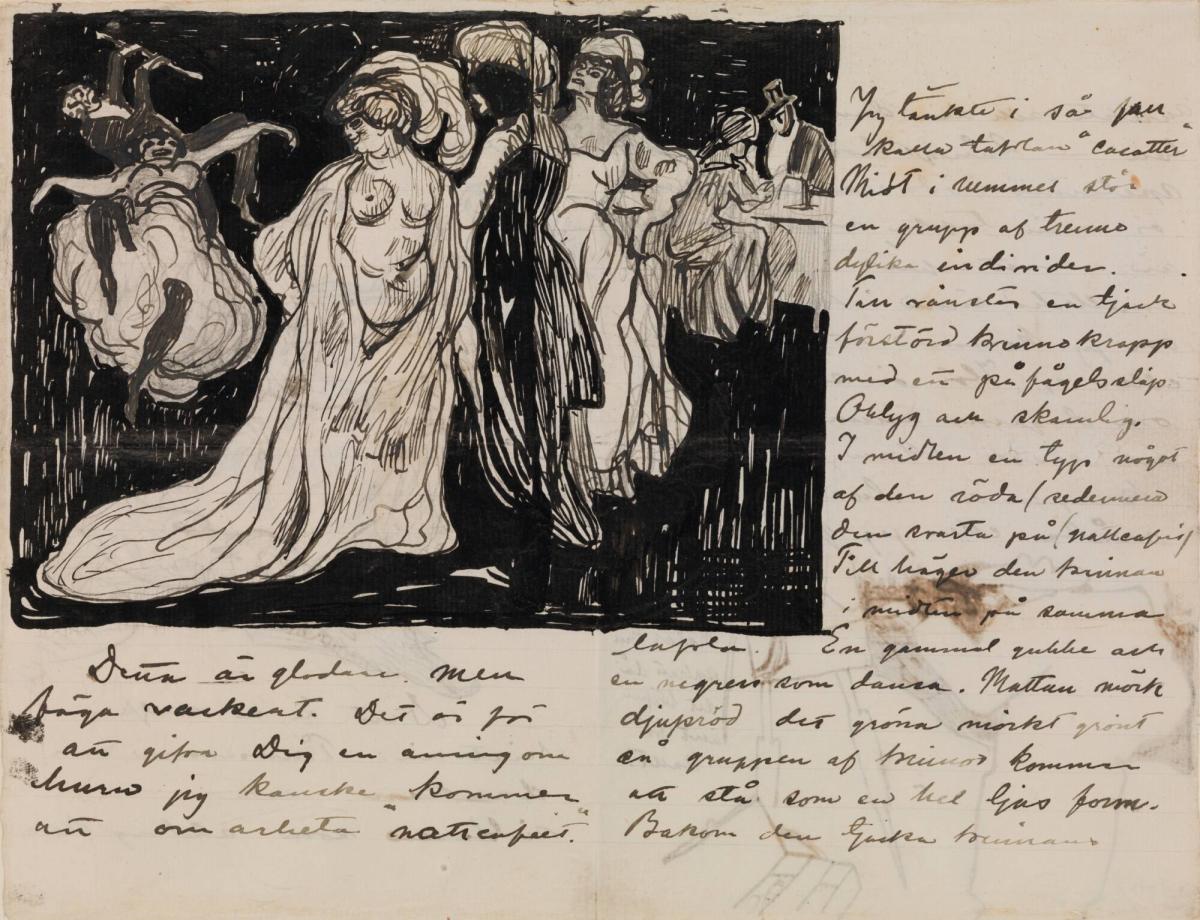 Detta är glodare. men
föga vackert. Det är för
att gifva Dig en aning om
huru jag kanske kommer
att omarbeta "nattcafeet".
Jag tänkte i så fall
kalla taflan "Cocotter"
Midt i rummet står
en grupp af trenne
dylika individer.
Till vänster en tjock
förstörd kvinnokropp
med en påfågelssläp
Oblyg och skamlig.
I midten en typ något
af den röda (sedermera
den svarta på (nattcafeet)
Till höger den kvinnan
i midten på samma
tafla. En gammal gubbe och
en negress som dansa. Mattan mörk
djupröd det gröna mörkt grönt
så gruppen af kvinnor kommer
att stå som en hel ljus form.
Bakom den tjocka kvinnans